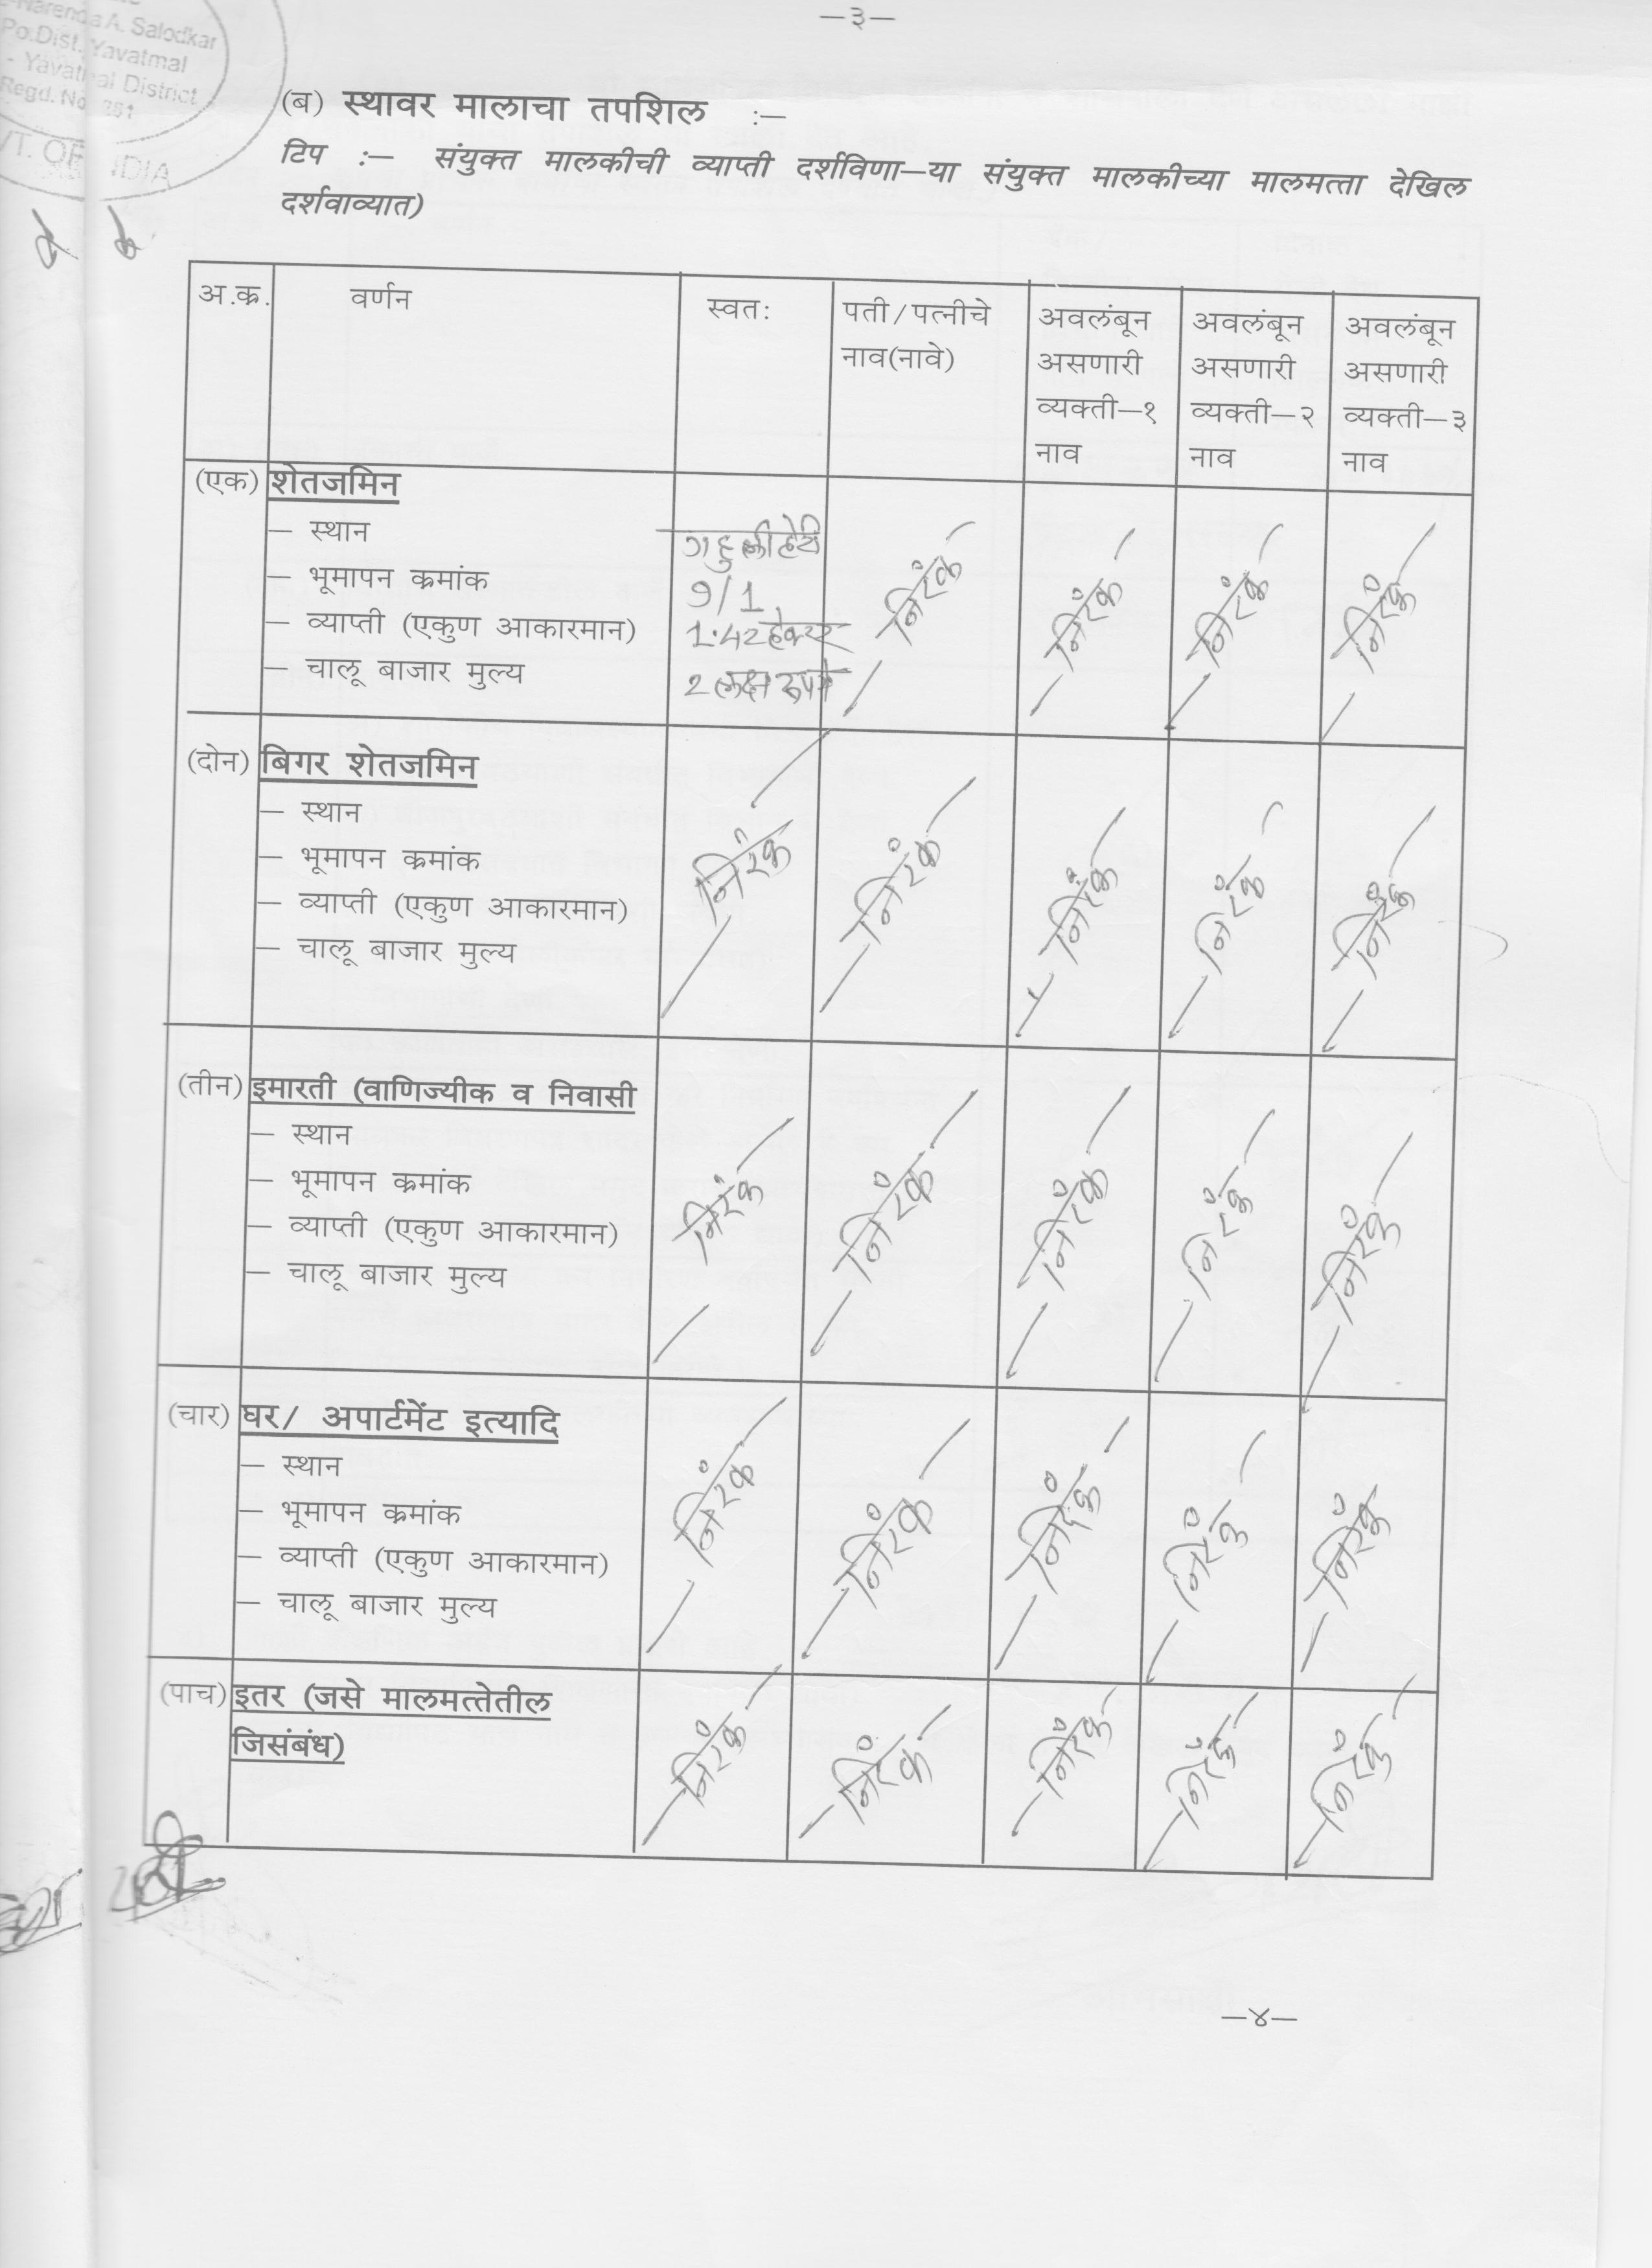 —३—
Narendra A. Salodkar
Po.Dist. Yavatmal
- Yavatmal District
Regd. No. 361
VT. OF INDIA
(ब) स्थावर मालाचा तपशिल :—
टिप :— संयुक्त मालकीची व्याप्ती दर्शविणा—या संयुक्त मालकीच्या मालमत्ता देखिल
दर्शवाव्यात)
अ.क्र. वर्णन स्वत: पती/पत्नीचे नाव(नावे) अवलंबून असणारी व्यक्ती—१ नाव अवलंबून असणारी व्यक्ती—२ नाव अवलंबून असणारी व्यक्ती—३ नाव
(एक) शेतजमिन
— स्थान
— भूमापन क्रमांक 9/1 निरंक निरंक निरंक निरंक
— व्याप्ती (एकुण आकारमान) 1.42 हेक्टर
— चालू बाजार मुल्य 2 लक्ष रुपये
(दोन) बिगर शेतजमिन
— स्थान
— भूमापन क्रमांक निरंक निरंक निरंक निरंक निरंक
— व्याप्ती (एकुण आकारमान)
— चालू बाजार मुल्य
(तीन) इमारती (वाणिज्यीक व निवासी
— स्थान
— भूमापन क्रमांक निरंक निरंक निरंक निरंक निरंक
— व्याप्ती (एकुण आकारमान)
— चालू बाजार मुल्य
(चार) घर/ अपार्टमेंट इत्यादि
— स्थान
— भूमापन क्रमांक निरंक निरंक निरंक निरंक निरंक
— व्याप्ती (एकुण आकारमान)
— चालू बाजार मुल्य
(पाच) इतर (जसे मालमत्तेतील
जिसंबंध) निरंक निरंक निरंक निरंक निरंक
—४—